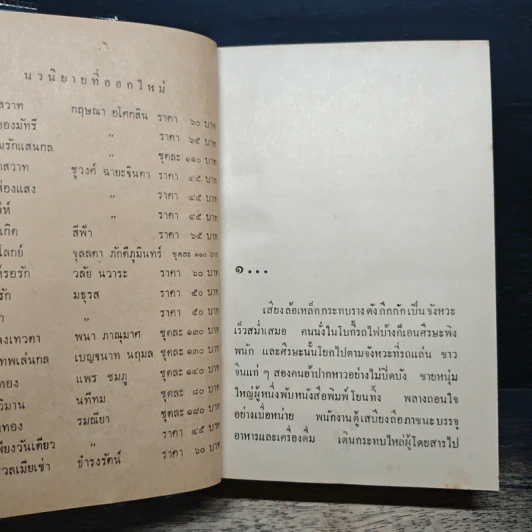 นวนิยายที่ออกใหม่
สวาท กฤษณา อโศกสิน ราคา ๖๐ บาท
ของมัทรี " ราคา ๖๕ บาท
มรักแสนกล " ชุดละ ๑๑๐ บาท
าสวาท ชูวงศ์ ฉายะจินดา ราคา ๔๕ บาท
ส่องแสง " ราคา ๔๕ บาท
" ราคา ๔๕ บาท
เกิด สีฟ้า ราคา ๖๕ บาท
โลกย์ จุลลดา ภักดีภูมินทร์ ชุดละ ๑๑๐ บาท
รอรัก วลัย นวาระ ราคา ๖๐ บาท
รัก มธุรส ราคา ๕๐ บาท
า " ราคา ๕๐ บาท
งเทวดา พนา ภาณุมาศ ชุดละ ๑๓๐ บาท
ทพเล่นกล เบญจนาท นฤมล ชุดละ ๑๓๐ บาท
ทอง แพร ชมภู ชุดละ ๑๔๐ บาท
วิมาน นทีทม ชุดละ ๘๐ บาท
าทอง รมณียา ชุดละ ๑๘๐ บาท
พียงวันเดียว " ราคา ๔๕ บาท
วลเมียเช่า ธำรงรัตน์ ราคา ๖๐ บาท
๑...
เสียงล้อเหล็กกระทบรางดังกึกกักเป็นจังหวะ
เร็วสม่ำเสมอ คนนั่งในโบกี้รถไฟบ้างก็เอนศีรษะพิง
พนัก และศีรษะนั้นโยกไปตามจังหวะที่รถแล่น ชาว
จีนแก่ ๆ สองคนอ้าปากหาวอย่างไม่ปิดบัง ชายหนุ่ม
ใหญ่ผู้หนึ่งพับหนังสือพิมพ์โยนทิ้ง พลางถอนใจ
อย่างเบื่อหน่าย พนักงานตู้เสบียงถือภาชนะบรรจุ
อาหารและเครื่องดื่ม เดินกระทบไหล่ผู้โดยสารไป